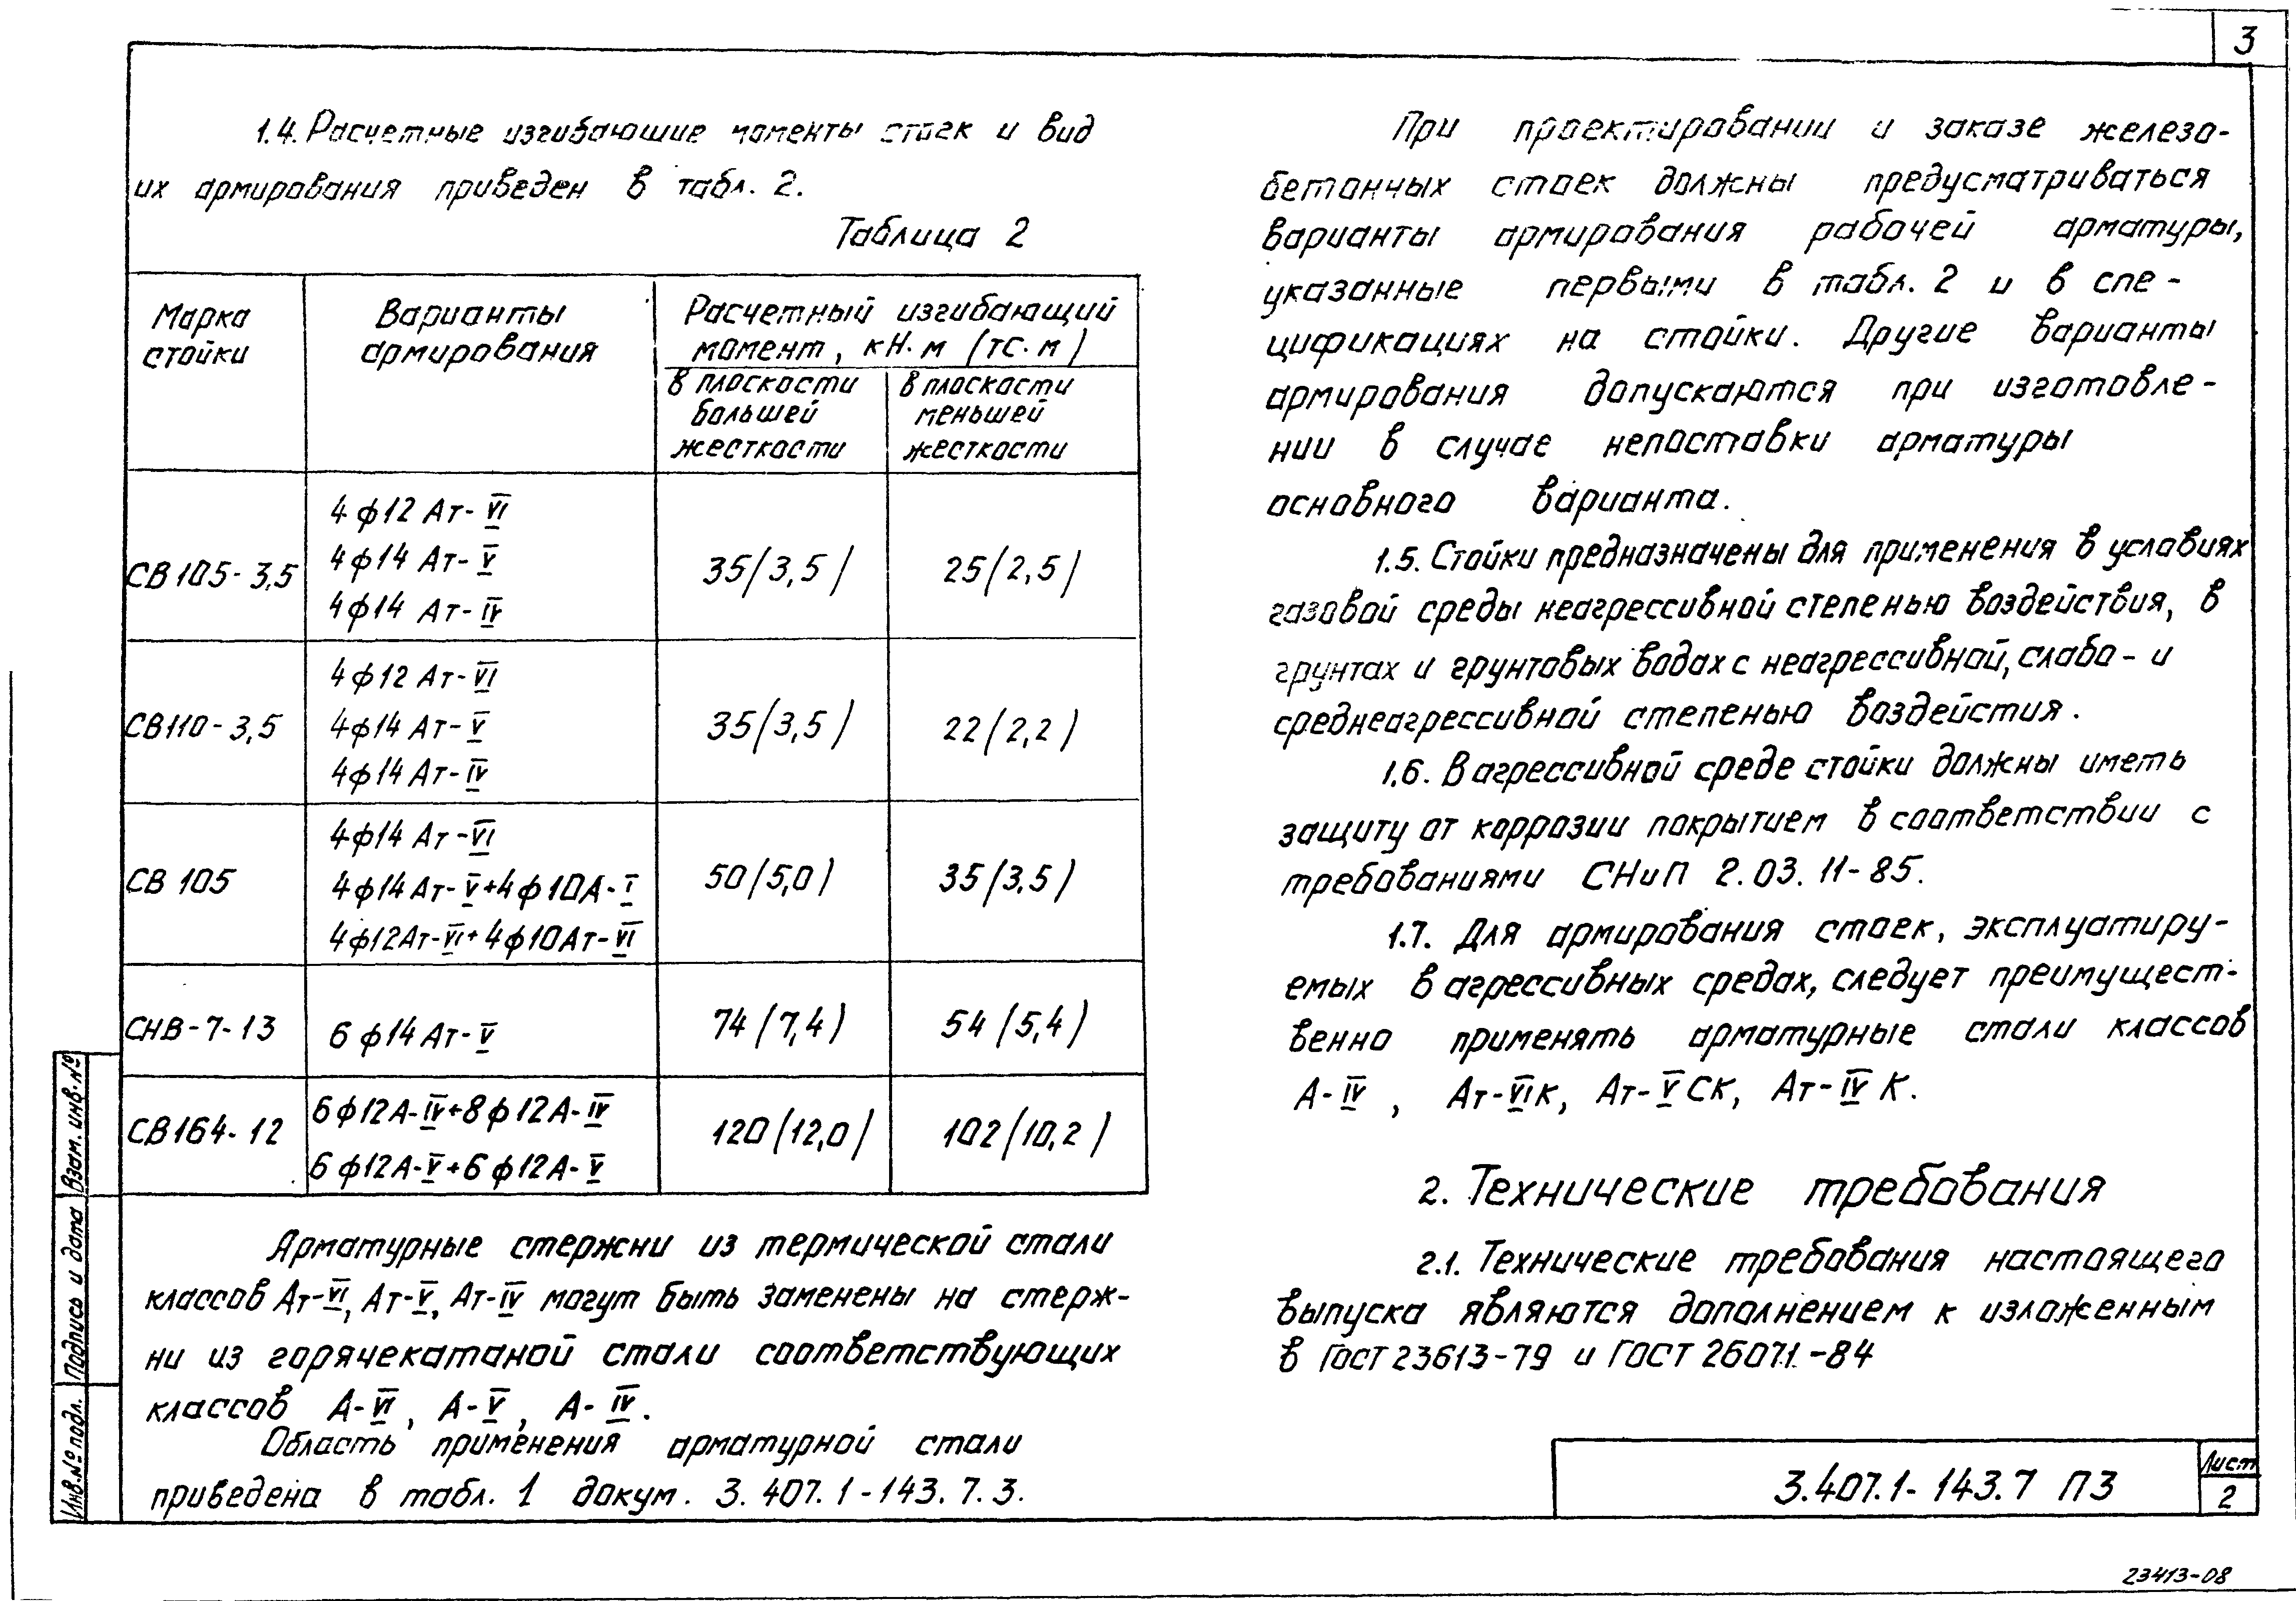 3
1.4. Расчетные изгибающие моменты стоек и вид
их армирования приведен в табл. 2.
Таблица 2
Марка стойки
Варианты армирования
Расчетный изгибающий момент, кН·м (тс·м)
в плоскости большей жесткости
в плоскости меньшей жесткости
СВ 105-3,5
4ф12 Ат-VI
4ф14 Ат-V
4ф14 Ат-IV
35(3,5)
25(2,5)
СВ110-3,5
4ф12 Ат-VI
4ф14 Ат-V
4ф14 Ат-IV
35(3,5)
22(2,2)
СВ 105
4ф14 Ат-VI
4ф14 Ат-V+4ф10А-I
4ф12Ат-VI+4ф10Ат-VI
50(5,0)
35(3,5)
СНВ-7-13
6ф14 Ат-V
74(7,4)
54(5,4)
СВ164-12
6ф12А-IV+8ф12А-IV
6ф12А-V+6ф12А-V
120(12,0)
102(10,2)
Арматурные стержни из термической стали
классов Ат-VI, Ат-V, Ат-IV могут быть заменены на стерж-
ни из горячекатаной стали соответствующих
классов А-VI, А-V, А-IV.
Область применения арматурной стали
приведена в табл. 1 докум. 3.407.1-143.7.3.
При проектировании и заказе железо-
бетонных стоек должны предусматриваться
варианты армирования рабочей арматуры,
указанные первыми в табл. 2 и в спе-
цификациях на стойки. Другие варианты
армирования допускаются при изготовле-
нии в случае непоставки арматуры
основного варианта.
1.5. Стойки предназначены для применения в условиях
газовой среды неагрессивной степенью воздействия, в
грунтах и грунтовых водах с неагрессивной, слабо- и
среднеагрессивной степенью воздейстия.
1.6. В агрессивной среде стойки должны иметь
защиту от коррозии покрытием в соответствии с
требованиями СНиП 2.03.11-85.
1.7. Для армирования стоек, эксплуатиру-
емых в агрессивных средах, следует преимущест-
венно применять арматурные стали классов
А-IV, Ат-VIК, Ат-VСК, Ат-IVК.
2. Технические требования
2.1. Технические требования настоящего
выпуска являются дополнением к изложенным
в ГОСТ 23613-79 и ГОСТ 26071.-84
Инв.№ подл.
Подпись и дата
Взам. инв.№
3.407.1-143.7 ПЗ
Лист
2
23413-08